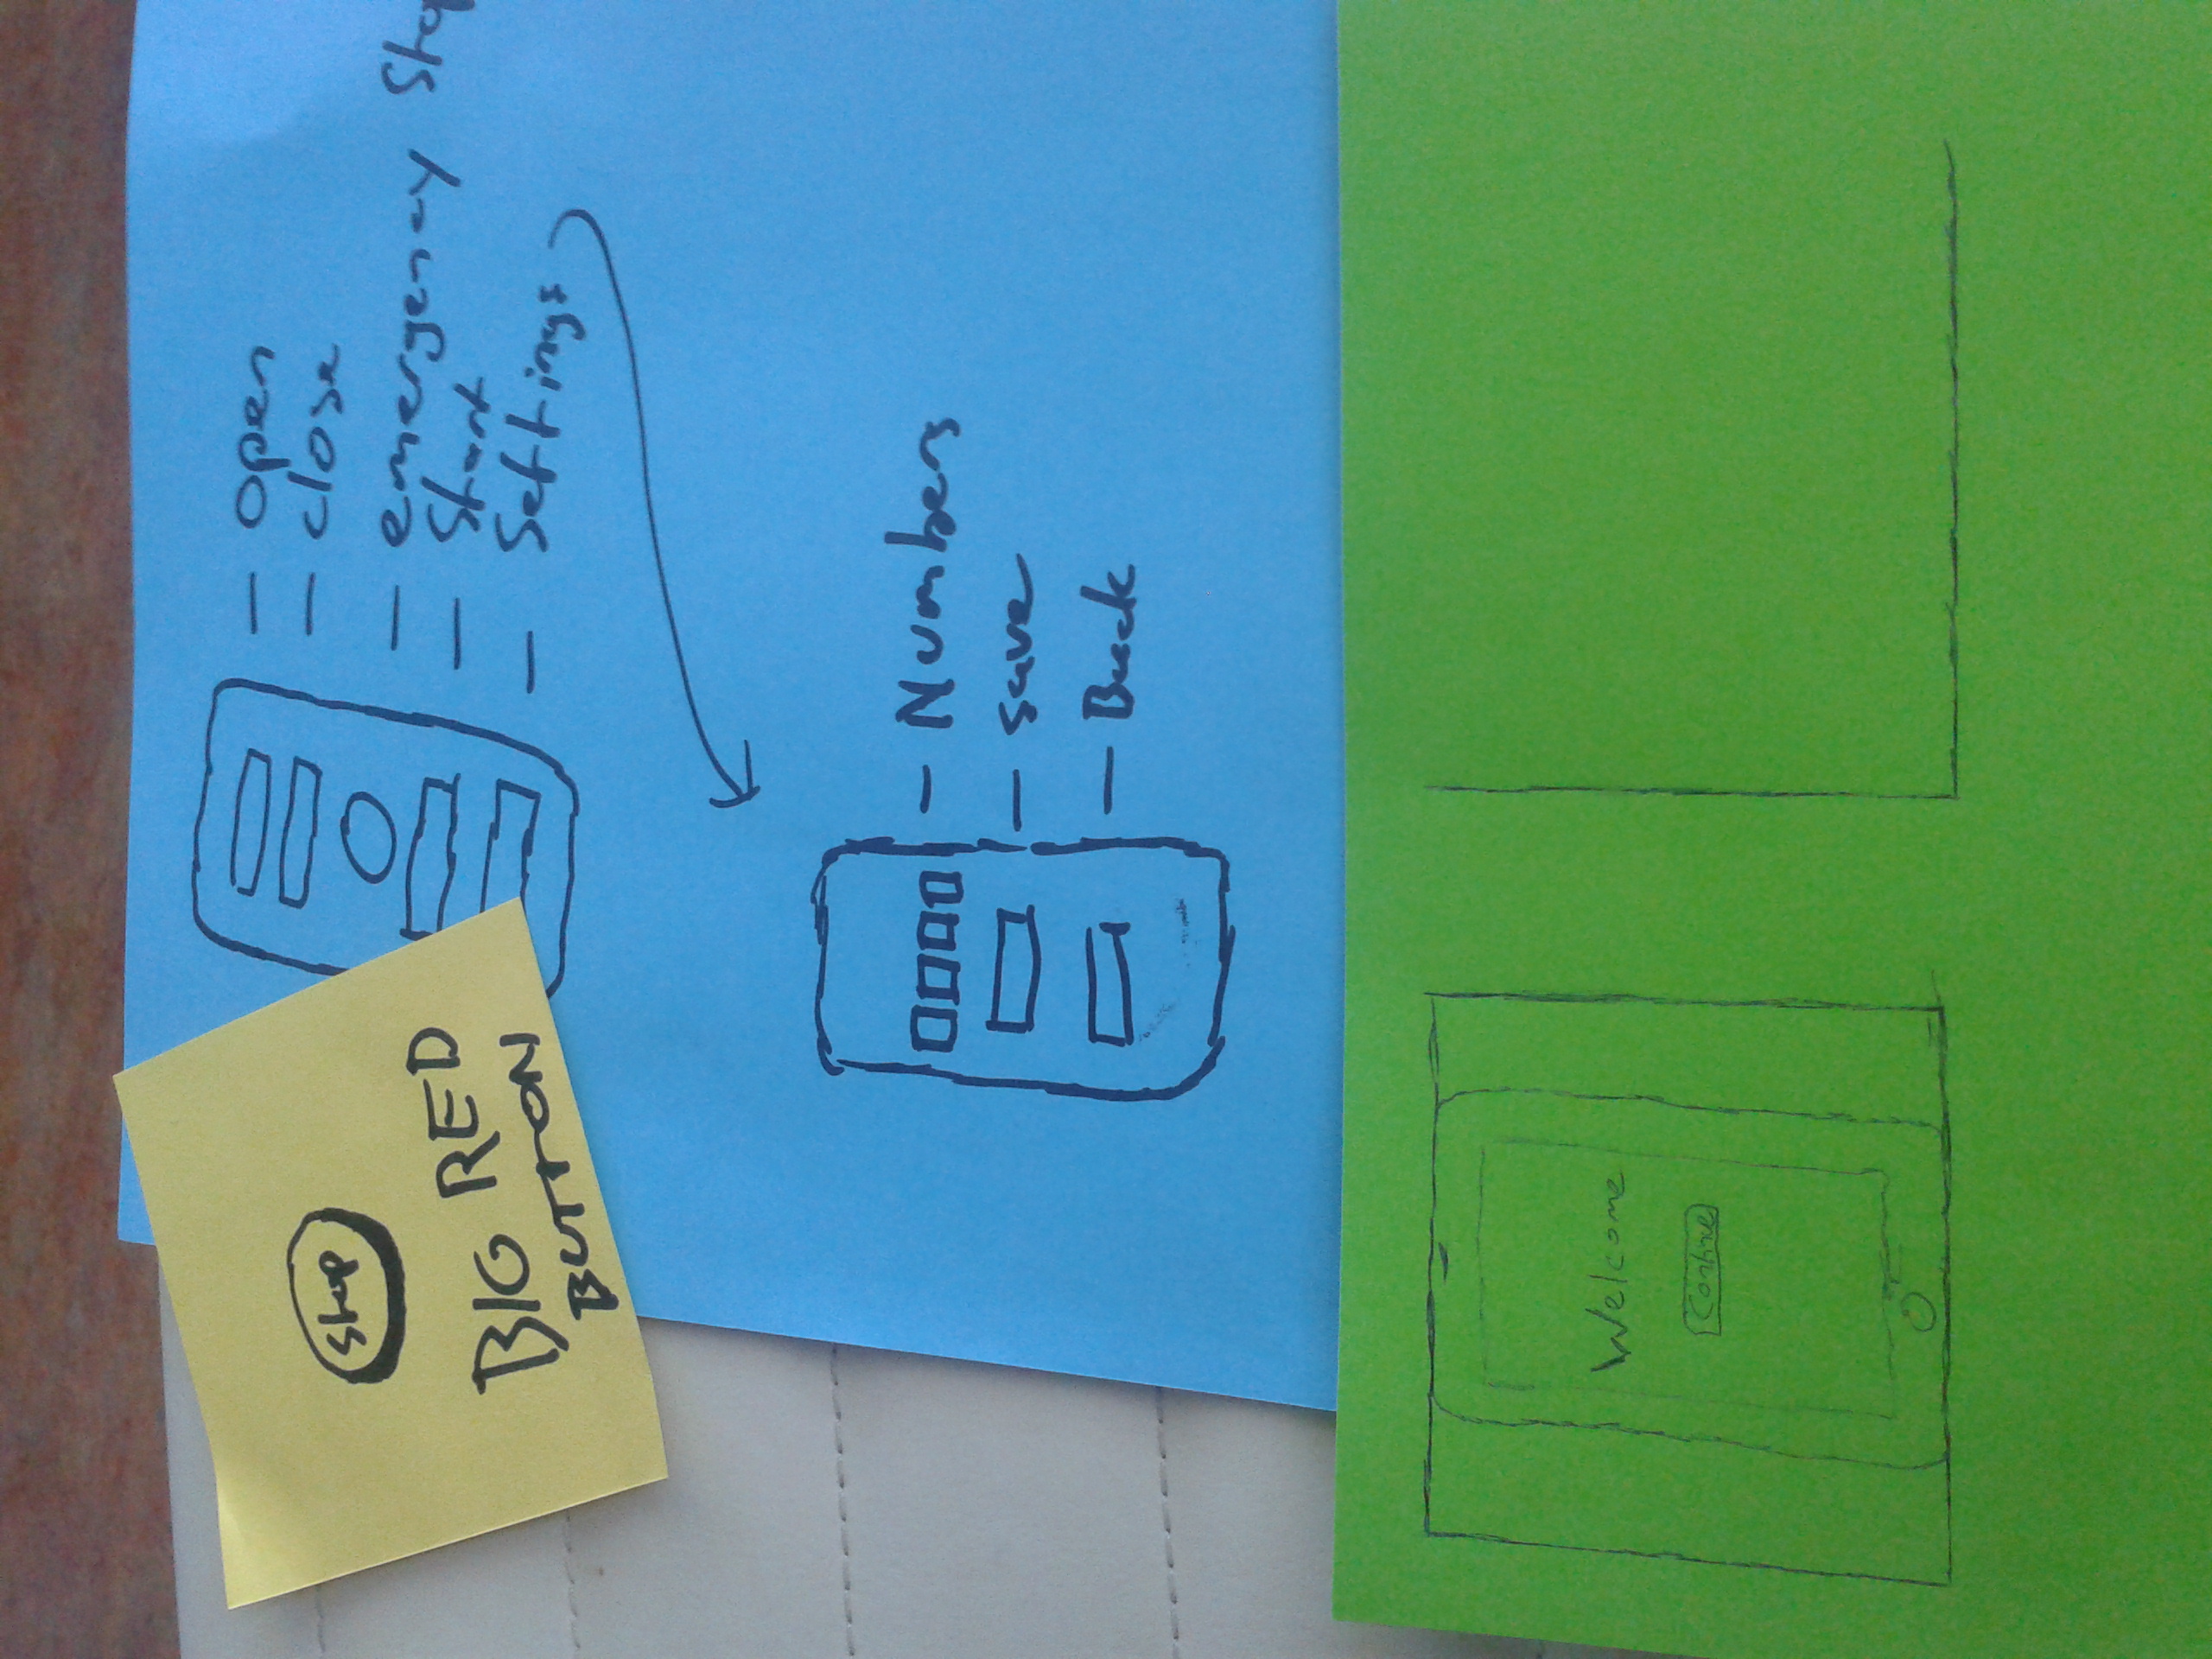 Stop
BIG RED
BUTTON
- open
- close
- emergency Stop
- Start
- Settings
- Numbers
- save
- Back
Welcome
Continue